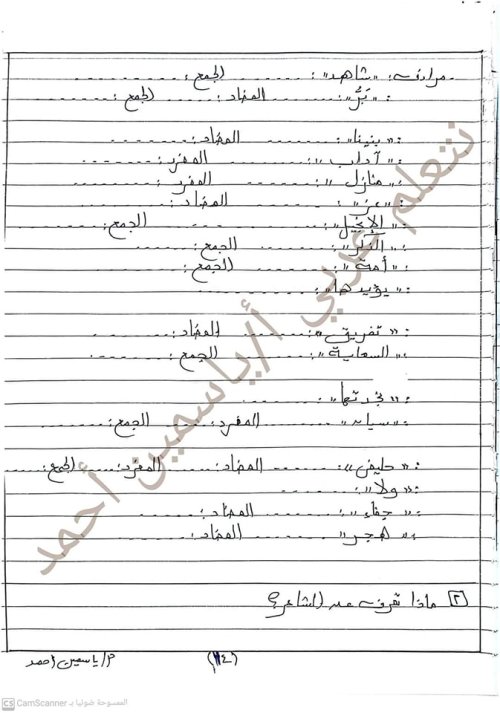 مرادف: "شاهد": ............ الجمع: ............
: "بَرُّ": ............ المضاد: ............ الجمع: ............
: "بنينا": ............ المضاد: ............
: "آداب": ............ المفرد: ............
: "منازل": ............ المفرد: ............
: "عز": ............ المضاد: ............
: "الإنجيل": ............ الجمع: ............
: "الذكر": ............ الجمع: ............
: "أمة": ............ الجمع: ............
: "يؤيدها": ............
: "تفريق": ............ المضاد: ............
: "السعاية": ............ الجمع: ............
: "نجدتها": ............
: ............ المفرد: ............ الجمع: ............
: "حليفي": ............ المضاد: ............ المفرد: ............ الجمع: ............
: "ولا": ............
: "جفاء": ............ المضاد: ............
: "هجر": ............ المضاد: ............
٢ ماذا تعرف عن الشاعر؟
م/ ياسمين أحمد
نتعلم عربي أ/ياسمين أحمد
الممسوحة ضوئيا بـ CamScanner
CS